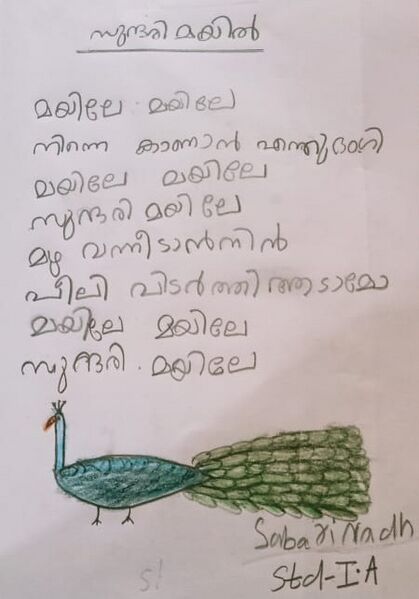 സുന്ദരി മയിൽ
മയിലേ മയിലേ
നിന്നെ കാണാൻ എന്തുഭംഗി
മയിലേ മയിലേ
സുന്ദരി മയിലേ
മഴ വന്നീടാൻനിൻ
പീലി വിടർത്തിആടാമോ
മയിലേ മയിലേ
സുന്ദരി. മയിലേ
Sabari Nadh
Std-I.A